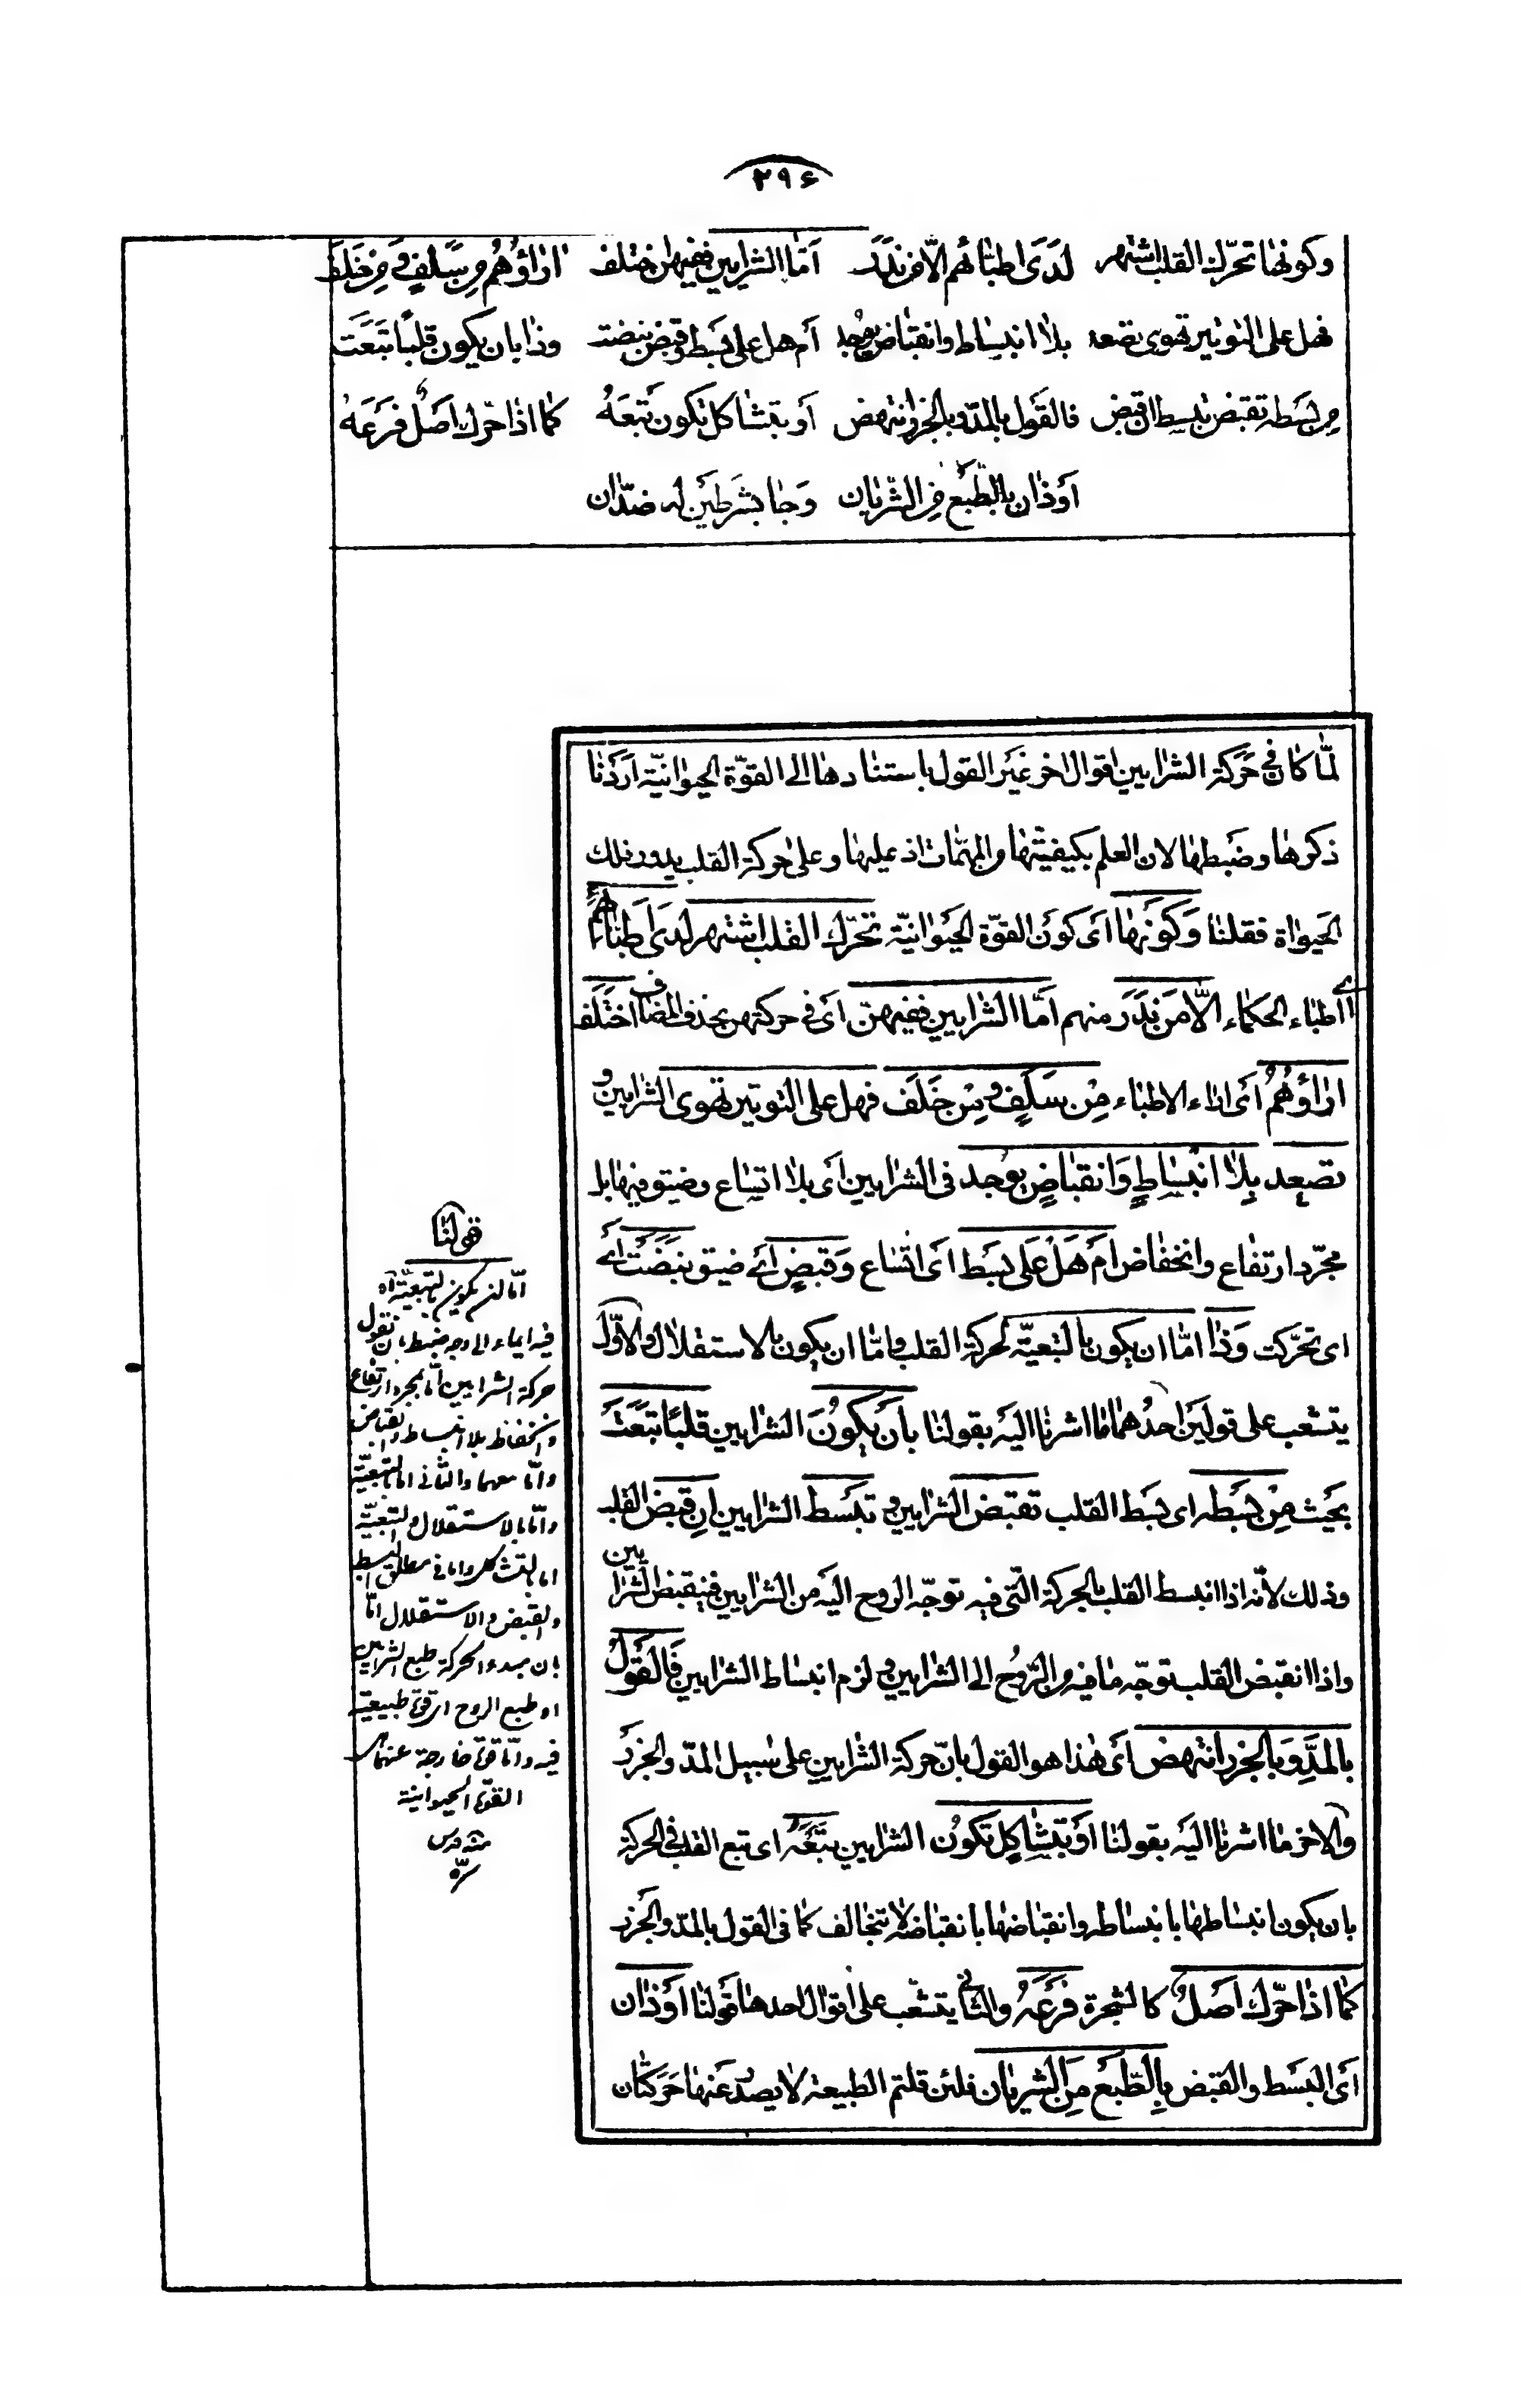 ٢٩۶
وكونها تحرّك القلب اشتهر لدى اطبّائهم الّا من ندر امّا الشرايين ففيهنّ اختلف اراؤهم من سلف و من خلف
فهل على التوتير تهوى تصعد بلا انبساط وانقباض يوجد أم هل على بسط وقبض نبضت وذا بان يكون قلبًا تبعت
من بسطه تقبض تبسط ان قبض فالقول بالمدّ وبالجزر انتهض أو بتشاكل تكون تبعه كما اذا حرّك اصل فرعه
أو ذان بالطبع من الشريان وجا بشرطين له ضدّان
لمّا كان في حركة الشرايين اقوال اخر غير القول باستنادها الى القوّة الحيوانيّة اردنا
ذكرها وضبطها لان العلم بكيفيّتها من المهمّات اذ عليها وعلى حركة القلب يدور فلك
الحيواة فقلنا وكونها أى كون القوّة الحيوانيّة تحرّك القلب اشتهر لدى اطبّائهم
اى اطبّاء الحكماء الّا من ندر منهم امّا الشرايين ففيهنّ اى في حركتهن بحذف المضاف اختلف
اراؤهم أى اراء الاطباء من سلف ومن خلف فهل على التوتير تهوى الشرايين و
تصعد بلا انبساطٍ وانقباضٍ يوجد في الشرايين أى بلا اتساع وضيق فيها بل
مجرّد ارتفاع وانخفاض أم هل على بسط أى اتساع وقبض أى ضيق نبضت أى
اى تحرّكت وذا امّا ان يكون بالتبعيّة لحركة القلب وامّا ان يكون بالاستقلال والاوّل
يتشعب على قولين احدهما ما اشرنا اليه بقولنا بأن يكون الشرايين قلبًا تبعت
بحيث من بسطه اى بسط القلب تقبض الشرايين و تبسط الشرايين ان قبض القلب
وذلك لانّه اذا انبسط القلب بالحركة الّتى فيه توجّه الروح اليه من الشرايين فينقبض الشرايين
واذا انقبض القلب توجّه ما فيه من الرّوح الى الشرايين و لزم انبساط الشرايين فالقول
بالمدّ وبالجزر انتهض أى هذا هو القول بانّ حركة الشرايين على سبيل المدّ والجزر
والاخر ما اشرنا اليه بقولنا أو بتشاكل تكون الشرايين تبعه اى تبع القلب في الحركة
بان يكون انبساطها بانبساطه وانقباضها بانقباضه لا تتخالف كما فى القول بالمدّ والجزر
كما اذا حرّك اصل كالشجرة فرعه والثانى يتشعّب على اقوال احدها قولنا أو ذان
أى البسط والقبض بالطّبع من الشريان فلئن قلتم الطبيعة لا يصدر عنها حركتان
قولنا
امّا ان يكون بالتبعيّة اه
فيه ايماء الى وجه ضبط بان نقول
حركة الشرايين امّا بمجرد ارتفاع
وانخفاض بلا انبساط وانقباض
وامّا معهما والثانى امّا بالتبعيّة
وامّا بالاستقلال والتبعيّة
اما بالتشاكل واما فى مطلق البسط
والقبض والاستقلال امّا
بان مبدء الحركة طبع الشرايين
او طبع الروح او قوّة طبيعيّة
فيه وامّا قوّة خارجة عنهما
القوّة الحيوانية
منه قدس
سرّه